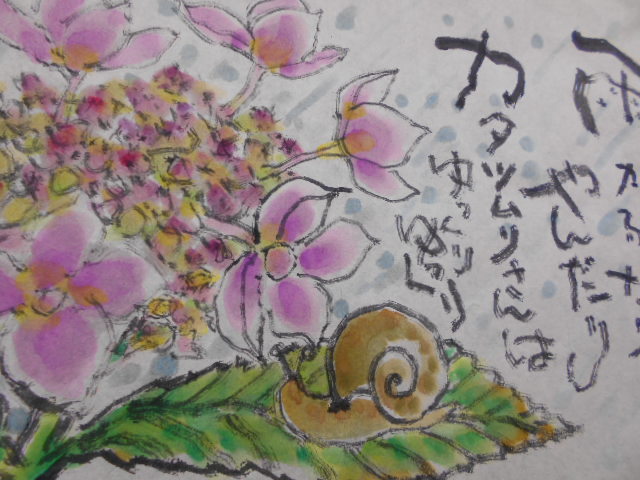 雨
やんだり
カタツムリさんは
ゆっくりゆっくり